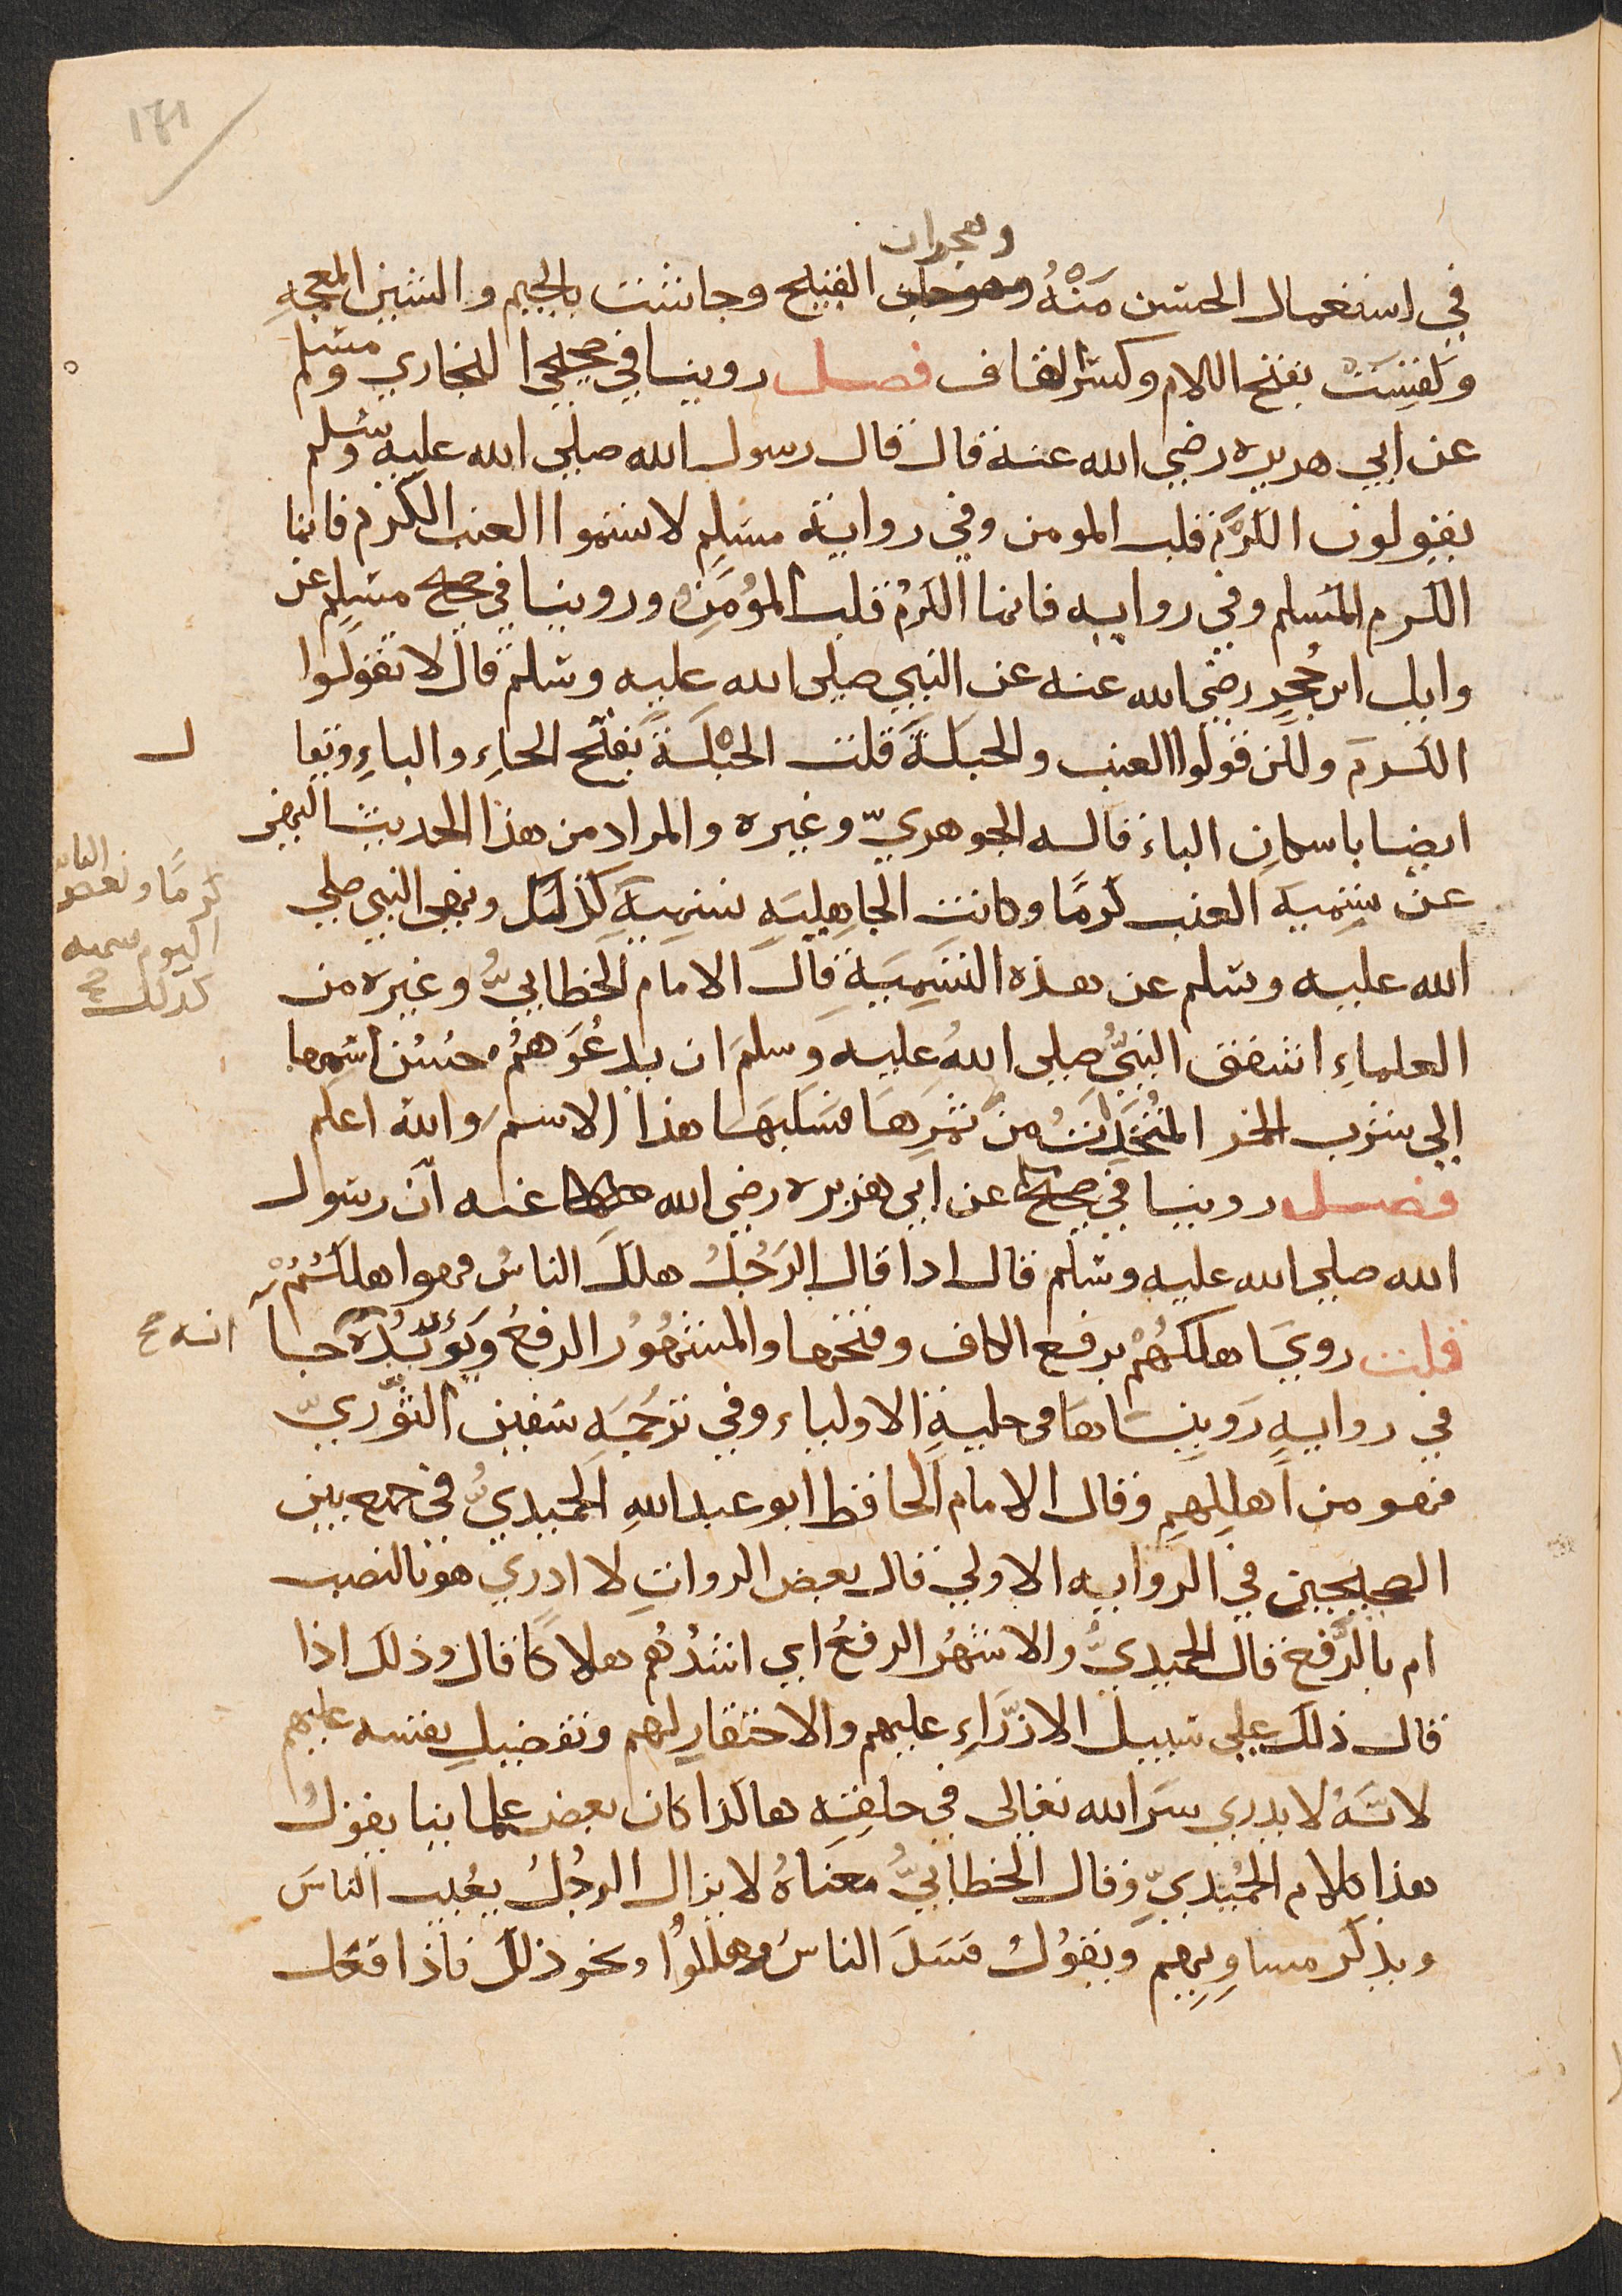 171
وهجران
في استعمال الحسن منهُ القبيح وجاشت بالجيم والشين المعجمه
ولقِسَت بفتح اللام وكسر القاف فصل روينا في صحيحي البخاري ومسلم
عن ابي هريره رضي الله عنه قال قال رسول الله صلي الله عليه وسلم
يقولون الكَرْم قلب المومن وفي رواية مسلم لا تسموا العنب الكرم فانما
الكرم المسلم وفي روايه فانما الكرمُ قلب المؤمن وروينا في صحيح مسلم عن
وايل ابن حُجرٍ رضي الله عنه عن النبي صلي الله عليه وسلم قال لا تقولوا
الكرمَ ولكن قولوا العنب والحبلة قلت الحبلة بفتح الحاءِ والباءِ ويقا
ل
ايضا باسكان الباء قاله الجوهريّ وغيره والمراد من هذا الحديث النهي
عن تسمية العنب كرمًا وكانت الجاهليةِ تسميهَ كذلك ونهى النبي صلي
كرمًا وبعض الناس
اليوم سميه
كذلك صح
الله عليه وسلم عن هذه التسمِيَةِ قال الامام الخطابيُّ وغيره من
العلماءِ اشفق النبيُّ صلى اللهُ عليه وسلمَ ان يدعُوَهُمْ حُسْن اسْمِها
الي شرب الخمر المتخذتُ من ثمرِهَا فسَلبهَا هذا الاسم والله اعلم
فصل روينا في صحيح عن ابي هريره رضي الله عنه ان رسول
الله صلي الله عليه وسلم قال اذا قال الرَجُلُ هلكَ الناسُ فهوا هلكهُمْ
قلت رويَ اهلكهُمْ برفع الكاف وفتحها والمشهُورُ الرفعُ ويُؤيّدُهُ جآ
انه صح
في روايةٍ رَوينَاهَا في حليةِ الاولياء وفي ترجمَةِ سفين الثّوريّ
فهو من اهلكهِمِ وقال الامام الحافظ ابو عبد اللهِ الحميديُّ في جمع بين
الصحيحين في الروايه الاولي قال بعض الرواتِ لا ادري هو بالنصب
ام بالرَّفع قال الحميديُّ والاشهُر الرفعُ اي اشدُهُم هلاكًا قال وذلك اذا
قال ذلك علي سبيل الازرَاءِ عليهم والاحتقارِ لهم وتفضيلِ نفسه عليهم
لانَّهُ لا يدري سرَ الله تعالي في خلقِهِ هاكذا كان بعض علماينا يقولُ
هذا كلام الحُمَيْديّ وقال الخطابيُّ معناهُ لا يزال الرجُلُ يعُيب الناسَ
ويذكر مساوِيهِم ويقوُلُ فسَدَ الناسُ وهلكوُا ونحو ذلك فاذا فعل